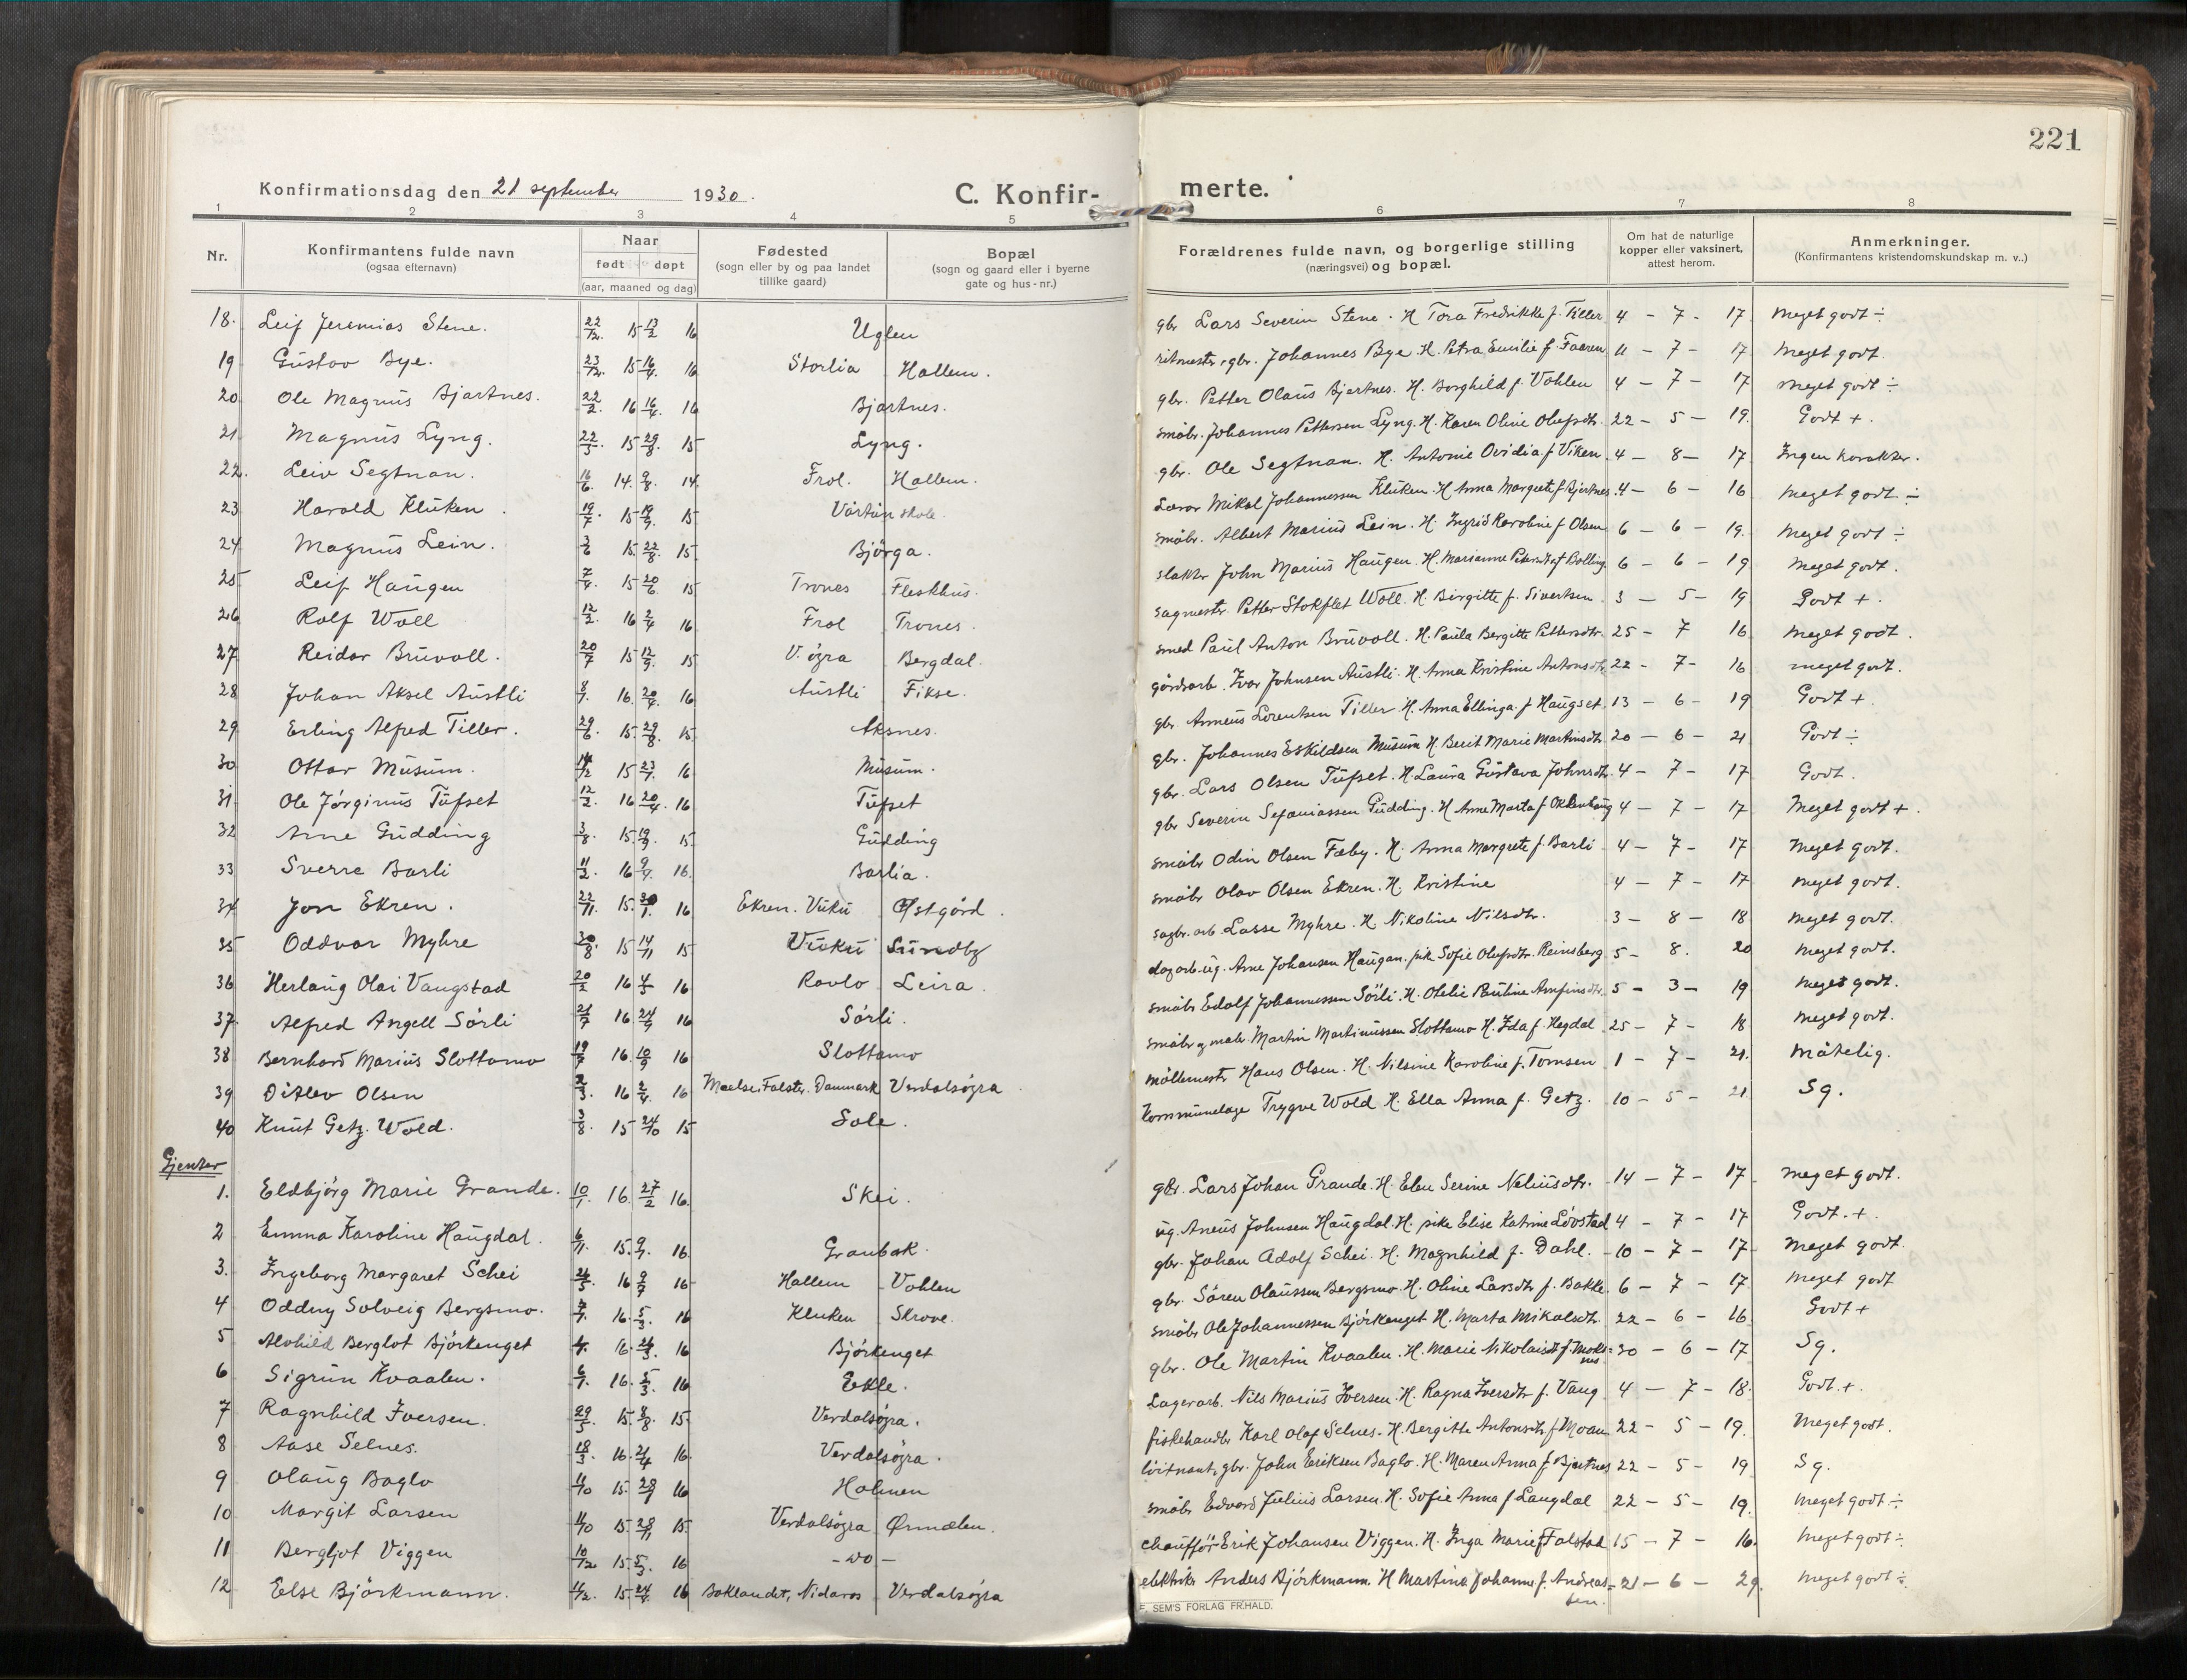 221
Konfirmationsdag den 21 september 1930.
C. Konfir- merte.
1 2 3 4 5 6 7 8
Nr.
Konfirmantens fulde navn
(ogsaa efternavn)
Naar
født døpt
(aar, maaned og dag)
Fødested
(sogn eller by og paa landet
tillike gaard)
Bopæl
(sogn og gaard eller i byerne
gate og hus-nr.)
Forældrenes fulde navn, og borgerlige stilling
(næringsvei) og bopæl.
Om hat de naturlige
kopper eller vaksinert,
attest herom.
Anmerkninger.
(Konfirmantens kristendomskundskap m. v..)
18. Leif Jeremias Stene. 22/12. 15 13/2 16 Uglen gbr Lars Severin Stene. H Tora Fredrikke f. Tiller 4 - 7 - 17 Meget godt ÷
19 Gustav Bye. 23/12. 15 16/4. 16 Storlia Hallem. ritmester, gbr. Johannes Bye. H. Petra Emilie f. Faaren 11 - 7 - 17 Meget godt.
20 Ole Magnus Bjartnes. 22/2. 16 16/4. 16 Bjartnes. gbr. Petter Olaus Bjartnes. H. Borghild f. Vohlen 4 - 7 - 17 Meget godt ÷
21 Magnus Lyng. 22/3 15 29/8. 15 Lyng. småbr. Johannes Pettersen Lyng. H. Karen Oline Olufsdtr. 22 - 5 - 19. Godt +.
22. Leiv Segtnan. 16/6. 14. 9/8. 14. Frol. Hallem. gbr. Ole Segtnan. H. Antonie Ovidia f Viken 4 - 8 - 17 Ingen karakter.
23 Harald Kluken. 19/7. 15 19/9. 15 Vårtun skole. Lærer Mikal Johannessen Kluken. H Anna Margrete f. Bjertnes. 4 - 6 - 16 Meget godt ÷
24 Magnus Lein. 3/6 15. 22/8. 15. Bjørga. småbr. Albert Marius Lein. H. Ingrid Karoline f Olsen 6 - 6 - 19. Meget godt ÷
25 Leif Haugen 7/4. 15 20/6. 15 Trones Fleskhus. slakter John Marius Haugen. H. Marianne Petersdtr f Bolling 6 - 6 - 19 Meget godt.
26 Rolf Woll 12/2. 16 2/4 16 Frol Trones. sagmester. Petter Stokflet Woll. H. Birgitte f. Sivertsen 3 - 5 - 19 Godt +.
27 Reidar Bruvoll. 20/7 15 12/9. 15 V. øgra Bergdal. smed Paul Anton Bruvoll. H. Paula Bergitte Pettersdtr. 25 - 7 16 Meget godt.
28 Johan Aksel Austli 8/1. 16. 20/4. 16 Austli Fikse. gårdsarb. Ivar Johnsen Austli. H. Anna Kristine Antonsdtr 22 - 7 - 16 meget godt.
29 Erling Alfred Tiller. 29/6. 15. 29/8. 15 Aksnes. gbr. Anneus Lorentsen Tiller. H. Anna Ellinga f Haugset 13 - 6 - 19 Godt +.
30 Ottar Musum. 14/12 15 23/4. 16 Musum. gbr. Johannes Eskildsen Musum H. Berit Marie Martinsdtr. 20 - 6 - 21 Godt ÷
31 Ole Jørginus Tufset 12/2. 16 20/4. 16 Tufset gbr. Lars Olsen Tufset. H. Laura Gustava Johnsdtr. 4 - 7 - 17 Godt.
32 Arne Gudding 3/8. 15. 19/9. 15. Gudding gbr Severin Sefaniassen Gudding. H Anne Marta f Okkenhaug 4 - 7 - 17 Meget godt +.
33 Sverre Barli 11/2. 16 9/4. 16. Barlia. småbr Odin Olsen Fæby. H. Anna Margrete f. Barli 4 - 7 - 17 Meget godt.
34 Jon Ekren. 22/11. 15. 30/1. 16 Ekren. Vuku Østgård. småbr Olav Olsen Ekren. H. Kristine 4 - 7 - 17 Meget godt.
35 Oddvar Myhre 30/8. 15 14/11 15 Vuku Sundby sagbr. arb. Lasse Myhre. H. Nikoline Nilsdtr. 3 - 8 - 18 Meget godt.
36 Herlaug Olai Vangstad 20/2 16 4/5 16 Ravlo Leira. dagarb. ug. Arne Johansen Haugan. pik Sofie Olufsdtr. Reinsberg 5 - 8. 20 Meget godt.
37. Alfred Angell Sørli 21/7 16 24/9 16 Sørli. småbr Edolf Johannessen Sørli. H. Otelie Pauline Arnfinsdtr. 5 - 3 - 19 Meget godt.
38 Bernhard Marius Slottamo 19/7 16. 10/9 16 Slottamo småbr og maler. Martin Martinussen Slottamo H. Ida f. Hegdal 25 - 7 - 18 Meget godt.
39 Ditlev Olsen 2/3. 16 2/4. 16 Mælse, Falster. Danmark Verdalsøgra møllemestr Hans Olsen. H. Nilsine Karoline f. Tomsen 1 - 7 - 21. Måtelig.
40 Knut Getz. Wold. 3/8. 15 24/10 15 Sole. Kommunelæge Trygve Wold H. Ella Anna f. Getz. 10 - 5 - 21 Sg.
Gjenter
1. Eldbjørg Marie Grande. 10/1. 16. 27/2 16. Skei. gbr. Lars Johan Grande. H. Elen Serine Neliusdtr. 14 - 7 - 17 Meget godt.
2 Emma Karoline Haugdal. 6/11. 15. 9/7. 16. Granbak. ug. Aneus Johnsen Haugdal. H. pike Elise Katrine Løvstad 4 - 7 - 17 Godt. +.
3. Ingeborg Margaret Schei 24/5. 16 9/7 16 Hallem Vohlen gbr. Johan Adolf Schei. H. Magnhild f. Dahl. 10 - 7 - 17 Meget godt
4 Oddny Solveig Bergsmo. 7/1. 16. 5/3. 16 Kluken Skrove. gbr. Søren Olaussen Bergsmo. H. Oline Larsdtr f. Bakke. 6 - 7 - 17. Meget godt
5 Alvhild Bergljot Bjørkenget 16. 26/3. 16 Bjørkenget småbr Ole Johannessen Bjørkenget H. Marta Mikalsdtr. 22 - 6 - 16 Godt +
6 Sigrun Kvaalen. 6/1. 16. 5/3. 16 Ekle. gbr. Ole Martin Kvaalen. H. Marie Nikolaisdtr f. Moks=nes 30 - 6 - 17 Sg.
7 Ragnhild Iversen. 29/5. 15. 8/8. 15. Verdalsøgra. Lagerarb. Nils Marius Iversen. H. Ragna Iversdtr f. Vang 4 - 7 - 18. Godt. +.
8 Aase Selnes. 18/3. 16. 24/4 16. Verdalsøgra. fiskehandler Karl Olaf Selnes. H. Bergitte Antonsdtr. f Moan 22 - 5 - 19. Meget godt.
9 Olaug Baglo 11/10 15. 28/7 16 Holmen løitnant, gbr. John Eriksen Baglo. H. Maren Anna f. Bjertnes 22 - 5 - 19 Sg.
10 Margit Larsen 11/10 15. 28/11 15. Verdalsøgra Ørmelen. småbr Edvard Julius Larsen. H. Sofie Anna f Langdal 22 - 5 - 19. Meget godt ÷
11 Bergljot Viggen 10/12 15. 5/3. 16 - do - chauffør Erik Johansen Viggen. H. Inga Marie f Falstad 15 - 7 - 16. Meget godt ÷
12 Else Bjørkmann. 11/12. 15. 24/4 16 Baklandet, Nidaros Verdalsøgra elektriker Anders Bjørkmann. H Martina Johanne f. Andreas=sen. 21 - 6 - 29. Meget godt ÷
SEM'S FORLAG FR.HALD.